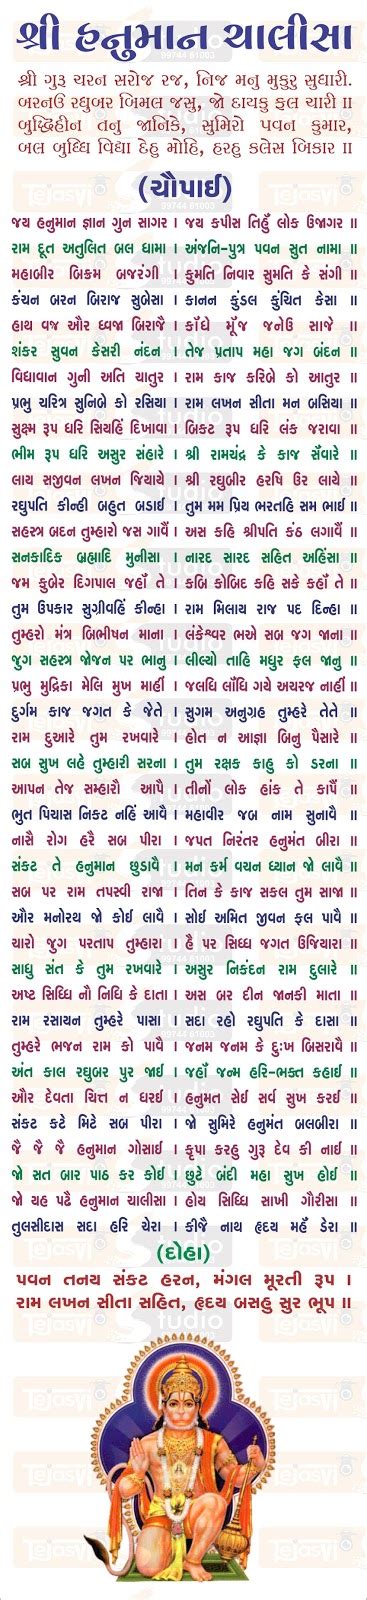 શ્રી હનુમાન ચાલીસા
શ્રી ગુરૂ ચરન સરોજ રજ, નિજ મનુ મુકુર સુધારી.
બરનઉં રઘુબર બિમલ જસુ, જો દાયકુ ફલ ચારી ॥
બુદ્ધિહીન તનુ જાનિકે, સુમિરો પવન કુમાર,
બલ બુધ્ધિ વિદ્યા દેહુ મોહિ, હરહુ કલેસ બિકાર ॥
(ચૌપાઈ)
જય હનુમાન જ્ઞાન ગુન સાગર । જય કપીસ તિહું લોક ઉજાગર ॥
રામ દૂત અતુલિત બલ ધામા । અંજનિ-પુત્ર પવન સુત નામા ॥
મહાબીર બિકમ બજરંગી । કુમતિ નિવાર સુમતિ કે સંગી ॥
કંચન બરન બિરાજ સુબેસા । કાનન કુંડલ કુંચિત કેસા ॥
હાથ વજ્ર ઔર ધ્વજા બિરાજૈ । કાઁધે મૂઁજ જનેઉ સાજે ॥
શંકર સુવન કેસરી નંદન । તેજ પ્રતાપ મહા જગ બંદન ॥
વિદ્યાવાન ગુની અતિ ચાતુર । રામ કાજ કરિબે કો આતુર ॥
પ્રભુ ચરિત્ર સુનિબે કો રસિયા । રામ લખન સીતા મન બસિયા ॥
સુક્ષ્મ રૂપ ધરિ સિયહિં દિખાવા । બિકટ રૂપ ધરિ લંક જરાવા ॥
ભીમ રૂપ ધરિ અસુર સંહારે । શ્રી રામચંદ્ર કે કાજ સઁવારે ॥
લાય સજીવન લખન જિયાયે । શ્રી રઘુબીર હરષિ ઉર લાયે ॥
રઘુપતિ કીન્હી બહુત બડાઈ । તુમ મમ પ્રિય ભરતહિ સમ ભાઈ ॥
સહસ્ત્ર બદન તુમ્હારો જસ ગાવૈં । અસ કહિ શ્રીપતિ કંઠ લગાવૈં ॥
સનકાદિક બ્રહ્માદિ મુનીસા । નારદ સારદ સહિત અહિંસા ॥
જમ કુબેર દિગપાલ જહાઁ તે । કબિ કોબિદ કહિ સકે કહાઁ તે ॥
તુમ ઉપકાર સુગ્રીવહિં કીન્હા । રામ મિલાય રાજ પદ દિન્હા ॥
તુમ્હરો મંત્ર બિભીષન માના । લંકેશ્વર ભએ સબ જગ જાના ॥
જુગ સહસ્ત્ર જોજન પર ભાનુ । લીલ્યો તાહિ મધુર ફલ જાનુ ॥
પ્રભુ મુદ્રિકા મેલિ મુખ માહીં । જલધિ લાઁધિ ગયે અચરજ નાહીં ॥
દુર્ગમ કાજ જગત કે જેતે । સુગમ અનુગ્રહ તુમ્હરે તેતે ॥
રામ દુઆરે તુમ રખવારે । હોત ન આજ્ઞા બિનુ પૈસારે ॥
સબ સુખ લહે તુમ્હારી સરના । તુમ રક્ષક કાહુ કો ડરના ॥
આપન તેજ સમ્હારૌ આપૈ । તીનોં લોક હાંક તે કાપૈં ॥
ભુત પિચાસ નિકટ નહિં આવૈ । મહાવીર જબ નામ સુનાવૈ ॥
નાસૈ રોગ હરૈ સબ પીરા । જપત નિરંતર હનુમંત બીરા ॥
સંકટ તે હનુમાન છુડાવૈ । મન કર્મ વચન ધ્યાન જો લાવૈ ॥
સબ પર રામ તપસ્વી રાજા । તિન કે કાજ સકલ તુમ સાજા ॥
ઔર મનોરથ જો કોઈ લાવૈ । સોઈ અમિત જીવન ફલ પાવૈ ॥
ચારો જુગ પરતાપ તુમ્હારા । હૈ પર સિધ્ધ જગત ઉજિયારા ॥
સાધુ સંત કે તુમ રખવારે । અસુર નિકંદન રામ દુલારે ॥
અષ્ટ સિધ્ધિ નૌ નિધિ કે દાતા । અસ બર દીન જાનકી માતા ॥
રામ રસાયન તુમ્હરે પાસા । સદા રહો રઘુપતિ કે દાસા ॥
તુમ્હરે ભજન રામ કો પાવૈ । જનમ જનમ કે દુઃખ બિસરાવૈ ॥
અંત કાલ રઘુબર પુર જાઈ । જહાઁ જન્મ હરિ-ભક્ત કહાઈ ॥
ઔર દેવતા ચિત્ત ન ધરઈ । હનુમત સેઈ સર્વ સુખ કરઈ ॥
સંકટ કટે મિટે સબ પીરા । જો સુમિરે હનુમંત બલબીરા ॥
જૈ જૈ જૈ હનુમાન ગોસાઈ । કૃપા કરહુ ગુરૂ દેવ કી નાઈ ॥
જો સત બાર પાઠ કર કોઈ । છુટે બંદી મહા સુખ હોઈ ॥
જો યહ પઢૈ હનુમાન ચાલીસા । હોય સિધ્ધિ સાખી ગૌરીસા ॥
તુલસીદાસ સદા હરિ ચેરા । કીજૈ નાથ હૃદય મહઁ ડેરા ॥
(દોહા)
પવન તનય સંકટ હરન, મંગલ મૂરતી રૂપ ।
રામ લખન સીતા સહિત, હૃદય બસહુ સુર ભૂપ ॥